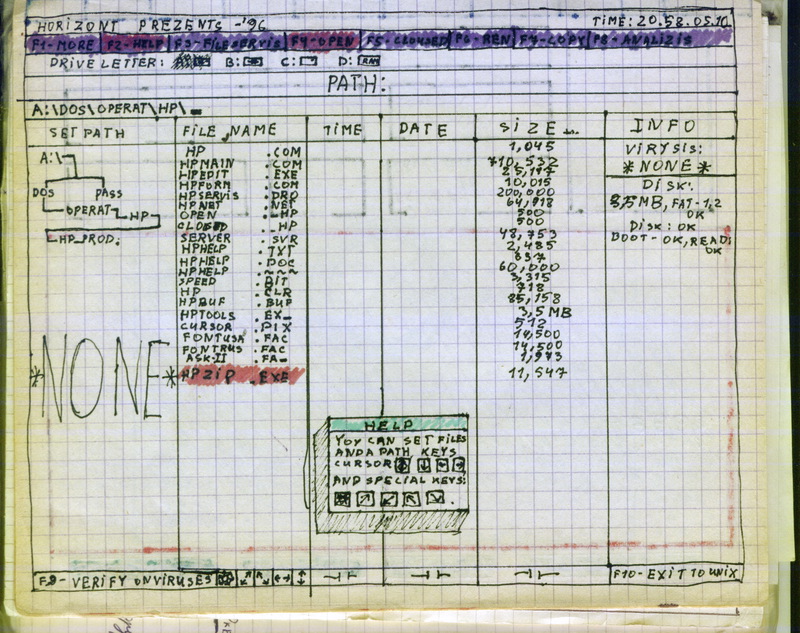 HORIZONT PREZENTS -'96 TIME: 20.58.05.10
F1-MORE F2-HELP F3-FILESERVIS F4-OPEN F5-CLOUSED F6-REN F7-COPY F8-ANALIZIS
DRIVE LETTER: B: C: D: RAM
PATH:
A:\DOS\OPERAT\HP\_
SET PATH FILE NAME TIME DATE SIZE INFO
A:\
DOS PASS
OPERAT HP
HP_PROD.
*NONE*
HP .COM 1,045
HPMAIN .COM 710,532
HPEDIT .EXE
HPFORM .COM 10,015
HPSERVIS .DRO 200,000
HPNET .NET 64,918
OPEN ._HP 500
CLOSED ._HP 500
SERVER .SVR 48,753
HPHELP .TXT 2,485
HPHELP .DOC 837
HPHELP .~~~ 60,000
SPEED .BIT 3,315
HP .CLR 718
HPBUF .BUF 85,158
HPTOOLS .EX_ 3,5MB
CURSOR .PIX 512
FONTUSA .FAC 14,500
FONTRUS .FAC 14,500
ASK-II .FA_ 1,973
HPZIP .EXE 11,547
VIRYSIS:
*NONE*
DISK:
MB, FAT-1,2
OK
DISK: OK
BOOT-OK, READ:
OK
HELP
YOY CAN SET FILES
AND A PATH KEYS
CURSOR
AND SPECIAL KEYS:
F9-VERIFY ON VIRUSES F10-EXIT TO UNIX